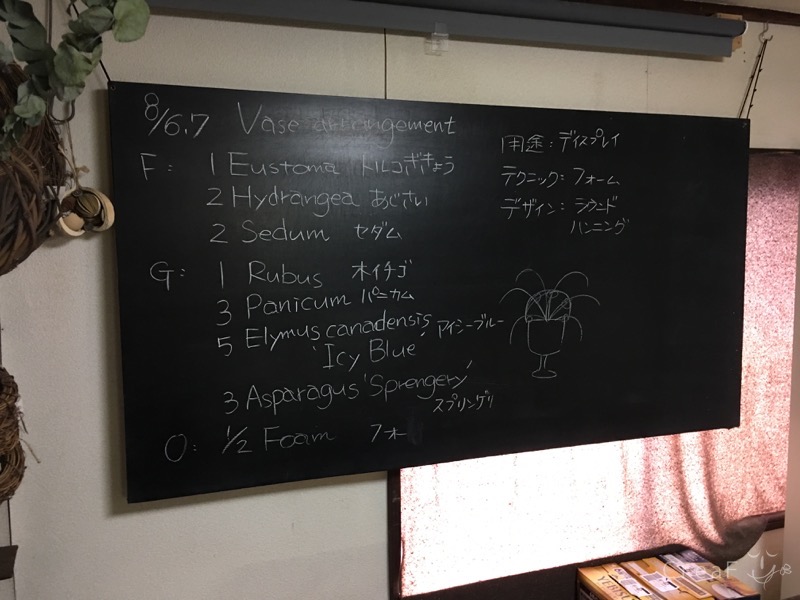 8/6.7 Vase arrangement
F: 1 Eustoma トルコききょう
2 Hydrangea あじさい
2 Sedum セダム
G: 1 Rubus 木イチゴ
3 Panicum パニカム
5 Elymus canadensis アイシーブルー
'Icy Blue'
3 Asparagus 'Sprengery'
スプリングリ
O: 1/2 Foam フォー
用途: ディスプレイ
テクニック: フォーム
デザイン: ラウンド
ハンニング
CreaF